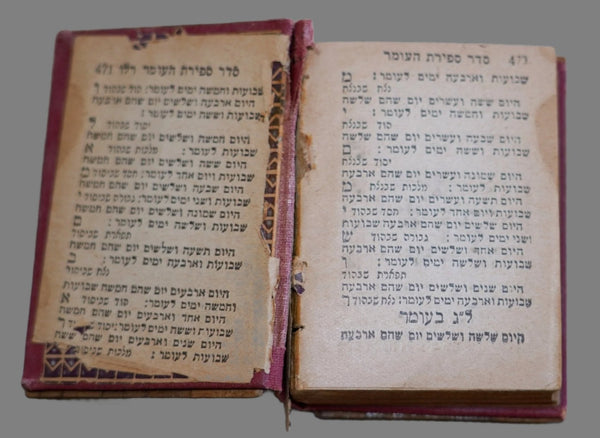 סדר ספירת העומר
שבועות וארבעה ימים לעומר: מ
נצח שבנצח
היום ששה ועשרים יום שהם שלשה
שבועות וחמשה ימים לעומר: י
הוד שבנצח
היום שבעה ועשרים יום שהם שלשה
שבועות וששה ימים לעומר: ם
יסוד שבנצח
היום שמונה ועשרים יום שהם ארבעה
שבועות לעומר: מלכות שבנצח מ
היום תשעה ועשרים יום שהם ארבעה
שבועות ויום אחד לעומר: חסד שבהוד י
היום שלשים יום שהם ארבעה שבועות
ושני ימים לעומר: גבורה שבהוד ש
היום אחד ושלשים יום שהם ארבעה
שבועות ושלשה ימים לעומר: ו
תפארת שבהוד
היום שנים ושלשים יום שהם ארבעה
שבועות וארבעה ימים לעומר: נצח שבהוד ך
ל״ג בעומר
היום שלשה ושלשים יום שהם ארבעה
סדר ספירת העומר רלו 471
שבועות וחמשה ימים לעומר: הוד שבהוד ך
היום ארבעה ושלשים יום שהם ארבעה
שבועות וששה ימים לעומר:
יסוד שבהוד ל
היום חמשה ושלשים יום שהם חמשה
שבועות לעומר: מלכות שבהוד א
היום ששה ושלשים יום שהם חמשה
שבועות ויום אחד לעומר: חסד שביסוד מ
היום שבעה ושלשים יום שהם חמשה
שבועות ושני ימים לעומר: גבורה שביסוד י
היום שמונה ושלשים יום שהם חמשה
שבועות ושלשה ימים לעומר: ם
תפארת שביסוד
היום תשעה ושלשים יום שהם חמשה
שבועות וארבעה ימים לעומר: ב
נצח שביסוד
היום ארבעים יום שהם חמשה שבועות
וחמשה ימים לעומר: הוד שביסוד א
היום אחד וארבעים יום שהם חמשה
שבועות וששה ימים לעומר: יסוד שביסוד ך
היום שנים וארבעים יום שהם ששה
שבועות לעומר: מלכות שביסוד